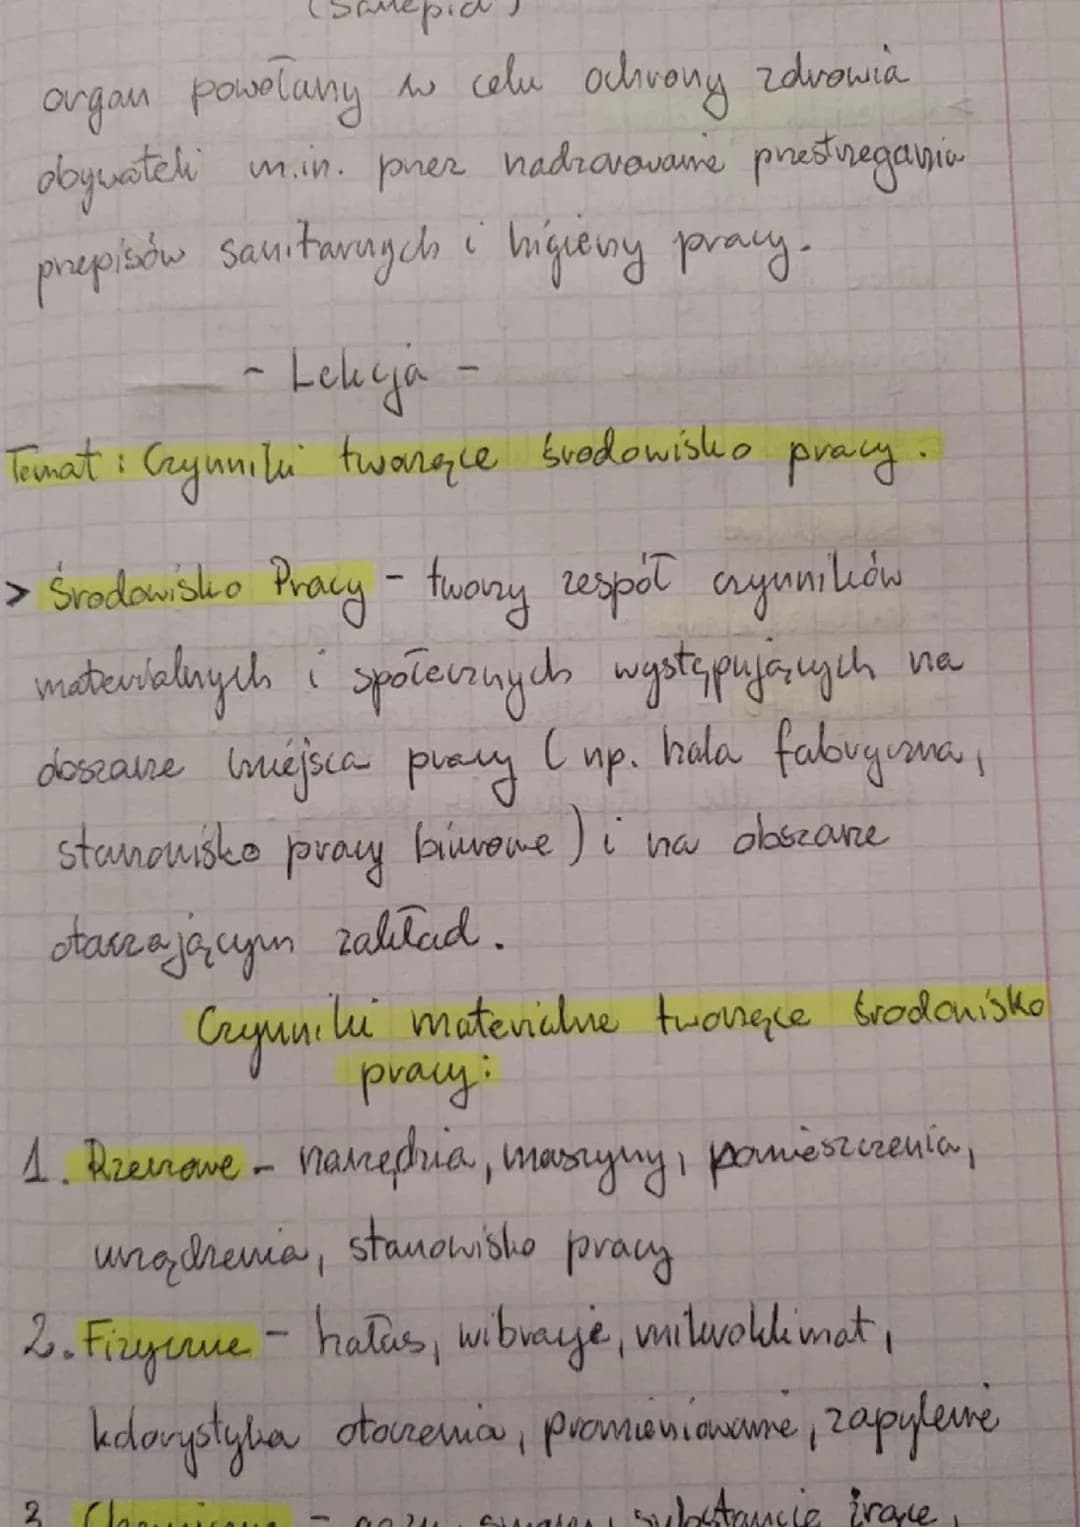 (Sanepid)
organ powołany w celu ochrony zdrowia
obywateli m.in. przez nadzorowanie przestrzegania
przepisów sanitarnych i higieny pracy.
- Lekcja -
Temat: Czynniki tworzące środowisko pracy.
> Środowisko Pracy - tworzy zespół czynników
materialnych i społecznych występujących na
obszarze miejsca pracy (np. hala fabryczna,
stanowisko pracy biurowe) i na obszarze
otaczającym zakład.
Czynniki materialne tworzące środowisko
pracy:
1. Rzeczowe - narzędzia, maszyny, pomieszczenia,
urządzenia, stanowisko pracy
2. Fizyczne - hałas, wibracje, mikroklimat,
kolorystyka otoczenia, promieniowanie, zapylenie
3. Chemiczne - gazy, substancje żrące,